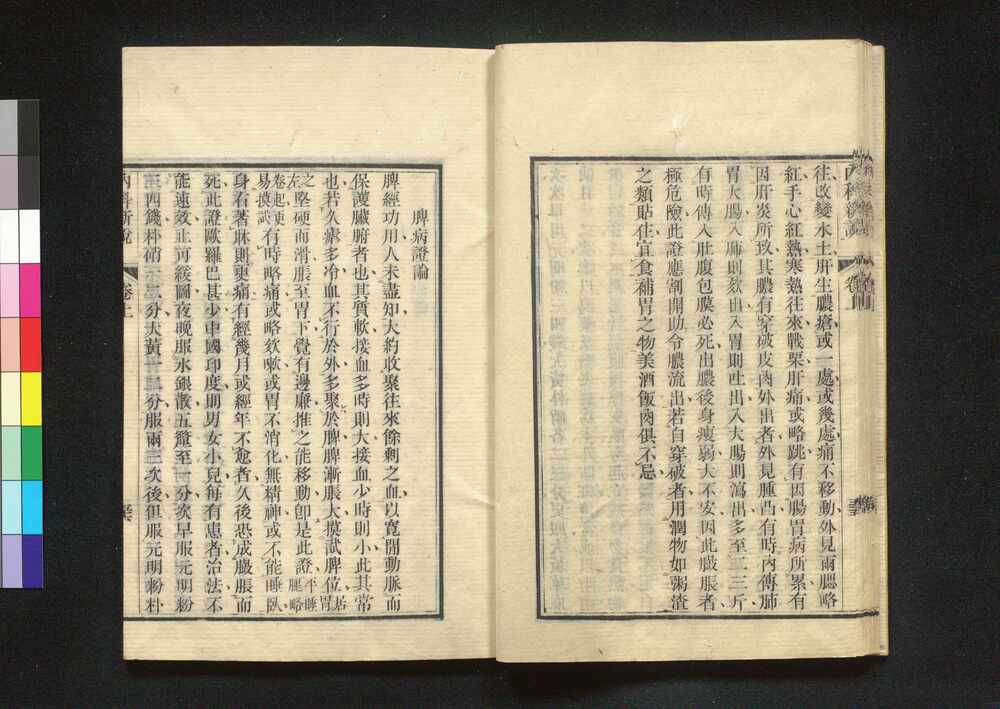 往改變水土肝生膿瘡或一處或幾處痛不移動外見兩腮略
紅手心紅熱寒熱往來戰栗肝痛或略跳有因腸胃病所累有
因肝炎所致其膿有穿破皮肉外出者外見腫凸有時內傳肺
胃大腸入肺則欬出入胃則吐出入大腸則瀉出多至二三斤
有時傳入肚腹包膜必死出膿後身瘦弱大不安因此臌脹者
極危險此證應割開助令膿流出若自穿破者用潤物如粥渣
之類貼住宜食補胃之物美酒飯肉俱不忌
脾病證論
脾經功用人未盡知大約收聚往來餘剩之血以寬閒動脈而
保護臟腑者也其質軟接血多時則大接血少時則小此其常
也若久瘧多冷血不行於外多聚於脾脾漸脹大摸試脾位居胃
之左堅硬而滑脹至胃下覺有邊廉推之能移動卽是此證平睡腿略
卷起更易摸試有時略痛或略欬嗽或胃不消化無精神或不能睡臥
身右著牀則更痛有經幾月或經年不愈者久後恐成臌脹而
死此證歐羅巴甚少中國印度則男女小兒每有患者治法不
能速效止可緩圖夜晚服水銀散五釐至一分次早服元明粉
三四錢朴硝 三分大黃 分服兩三次後但服元明粉朴
內科新說
卷上